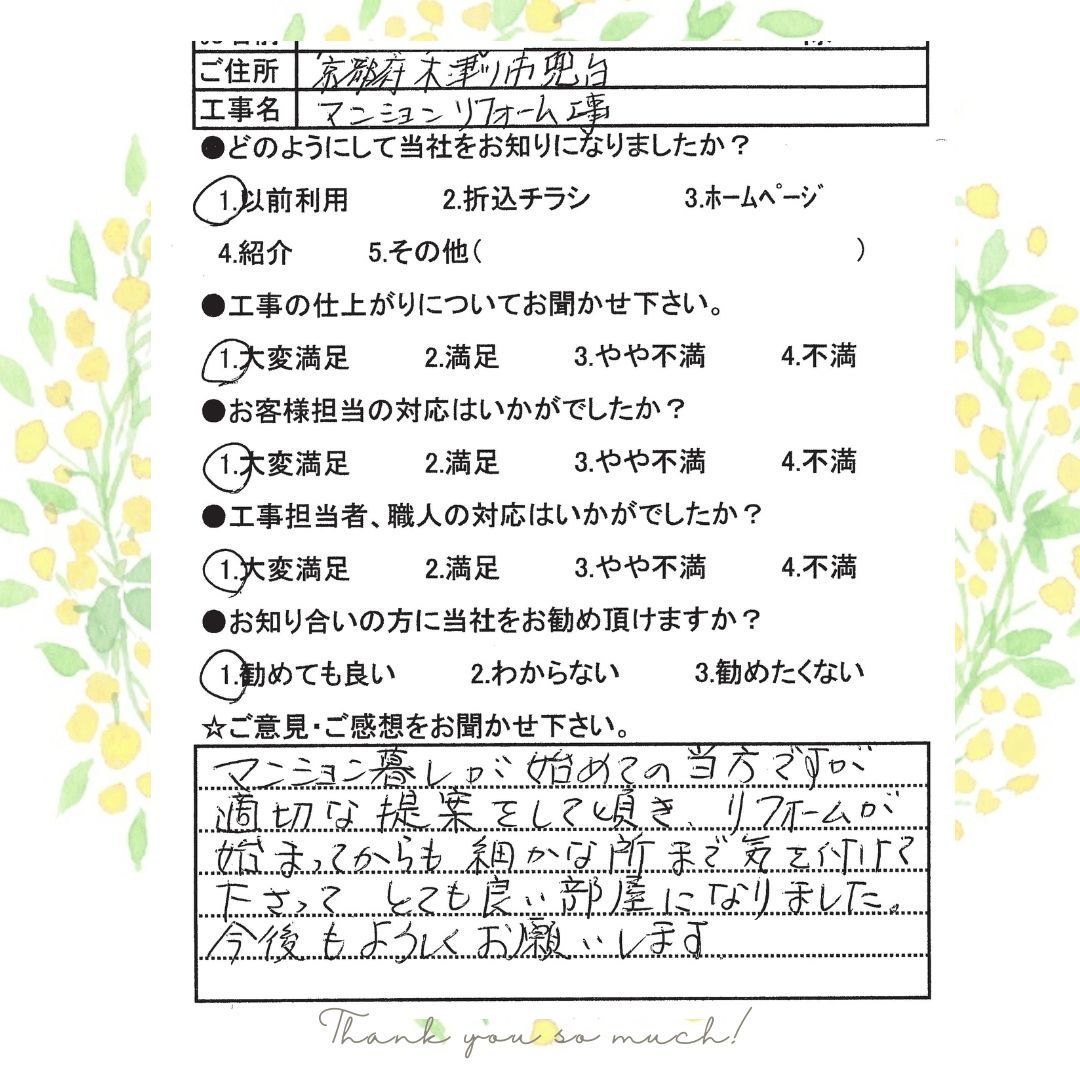 ご住所 京都府木津川市兜台
工事名 マンションリフォーム工事
●どのようにして当社をお知りになりましたか？
1.以前利用 2.折込チラシ 3.ホームページ
4.紹介 5.その他( )
●工事の仕上がりについてお聞かせ下さい。
1.大変満足 2.満足 3.やや不満 4.不満
●お客様担当の対応はいかがでしたか？
1.大変満足 2.満足 3.やや不満 4.不満
●工事担当者、職人の対応はいかがでしたか？
1.大変満足 2.満足 3.やや不満 4.不満
●お知り合いの方に当社をお勧め頂けますか？
1.勧めても良い 2.わからない 3.勧めたくない
☆ご意見・ご感想をお聞かせ下さい。
マンション暮しが始めての当方ですが
適切な提案をして頂き、リフォームが
始まってからも細かな所まで気を付けて
下さって とても良い部屋になりました。
今後もよろしくお願いします
Thank you so much!